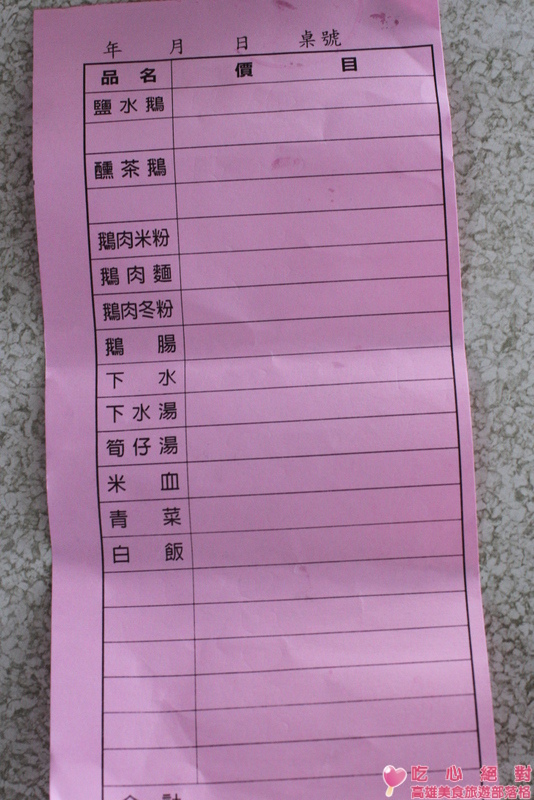 年 月 日 桌號
品名 價目
鹽水鵝
醺茶鵝
鵝肉米粉
鵝肉麵
鵝肉冬粉
鵝腸
下水
下水湯
筍仔湯
米血
青菜
白飯
合計
吃心絕對
高雄美食旅遊部落格